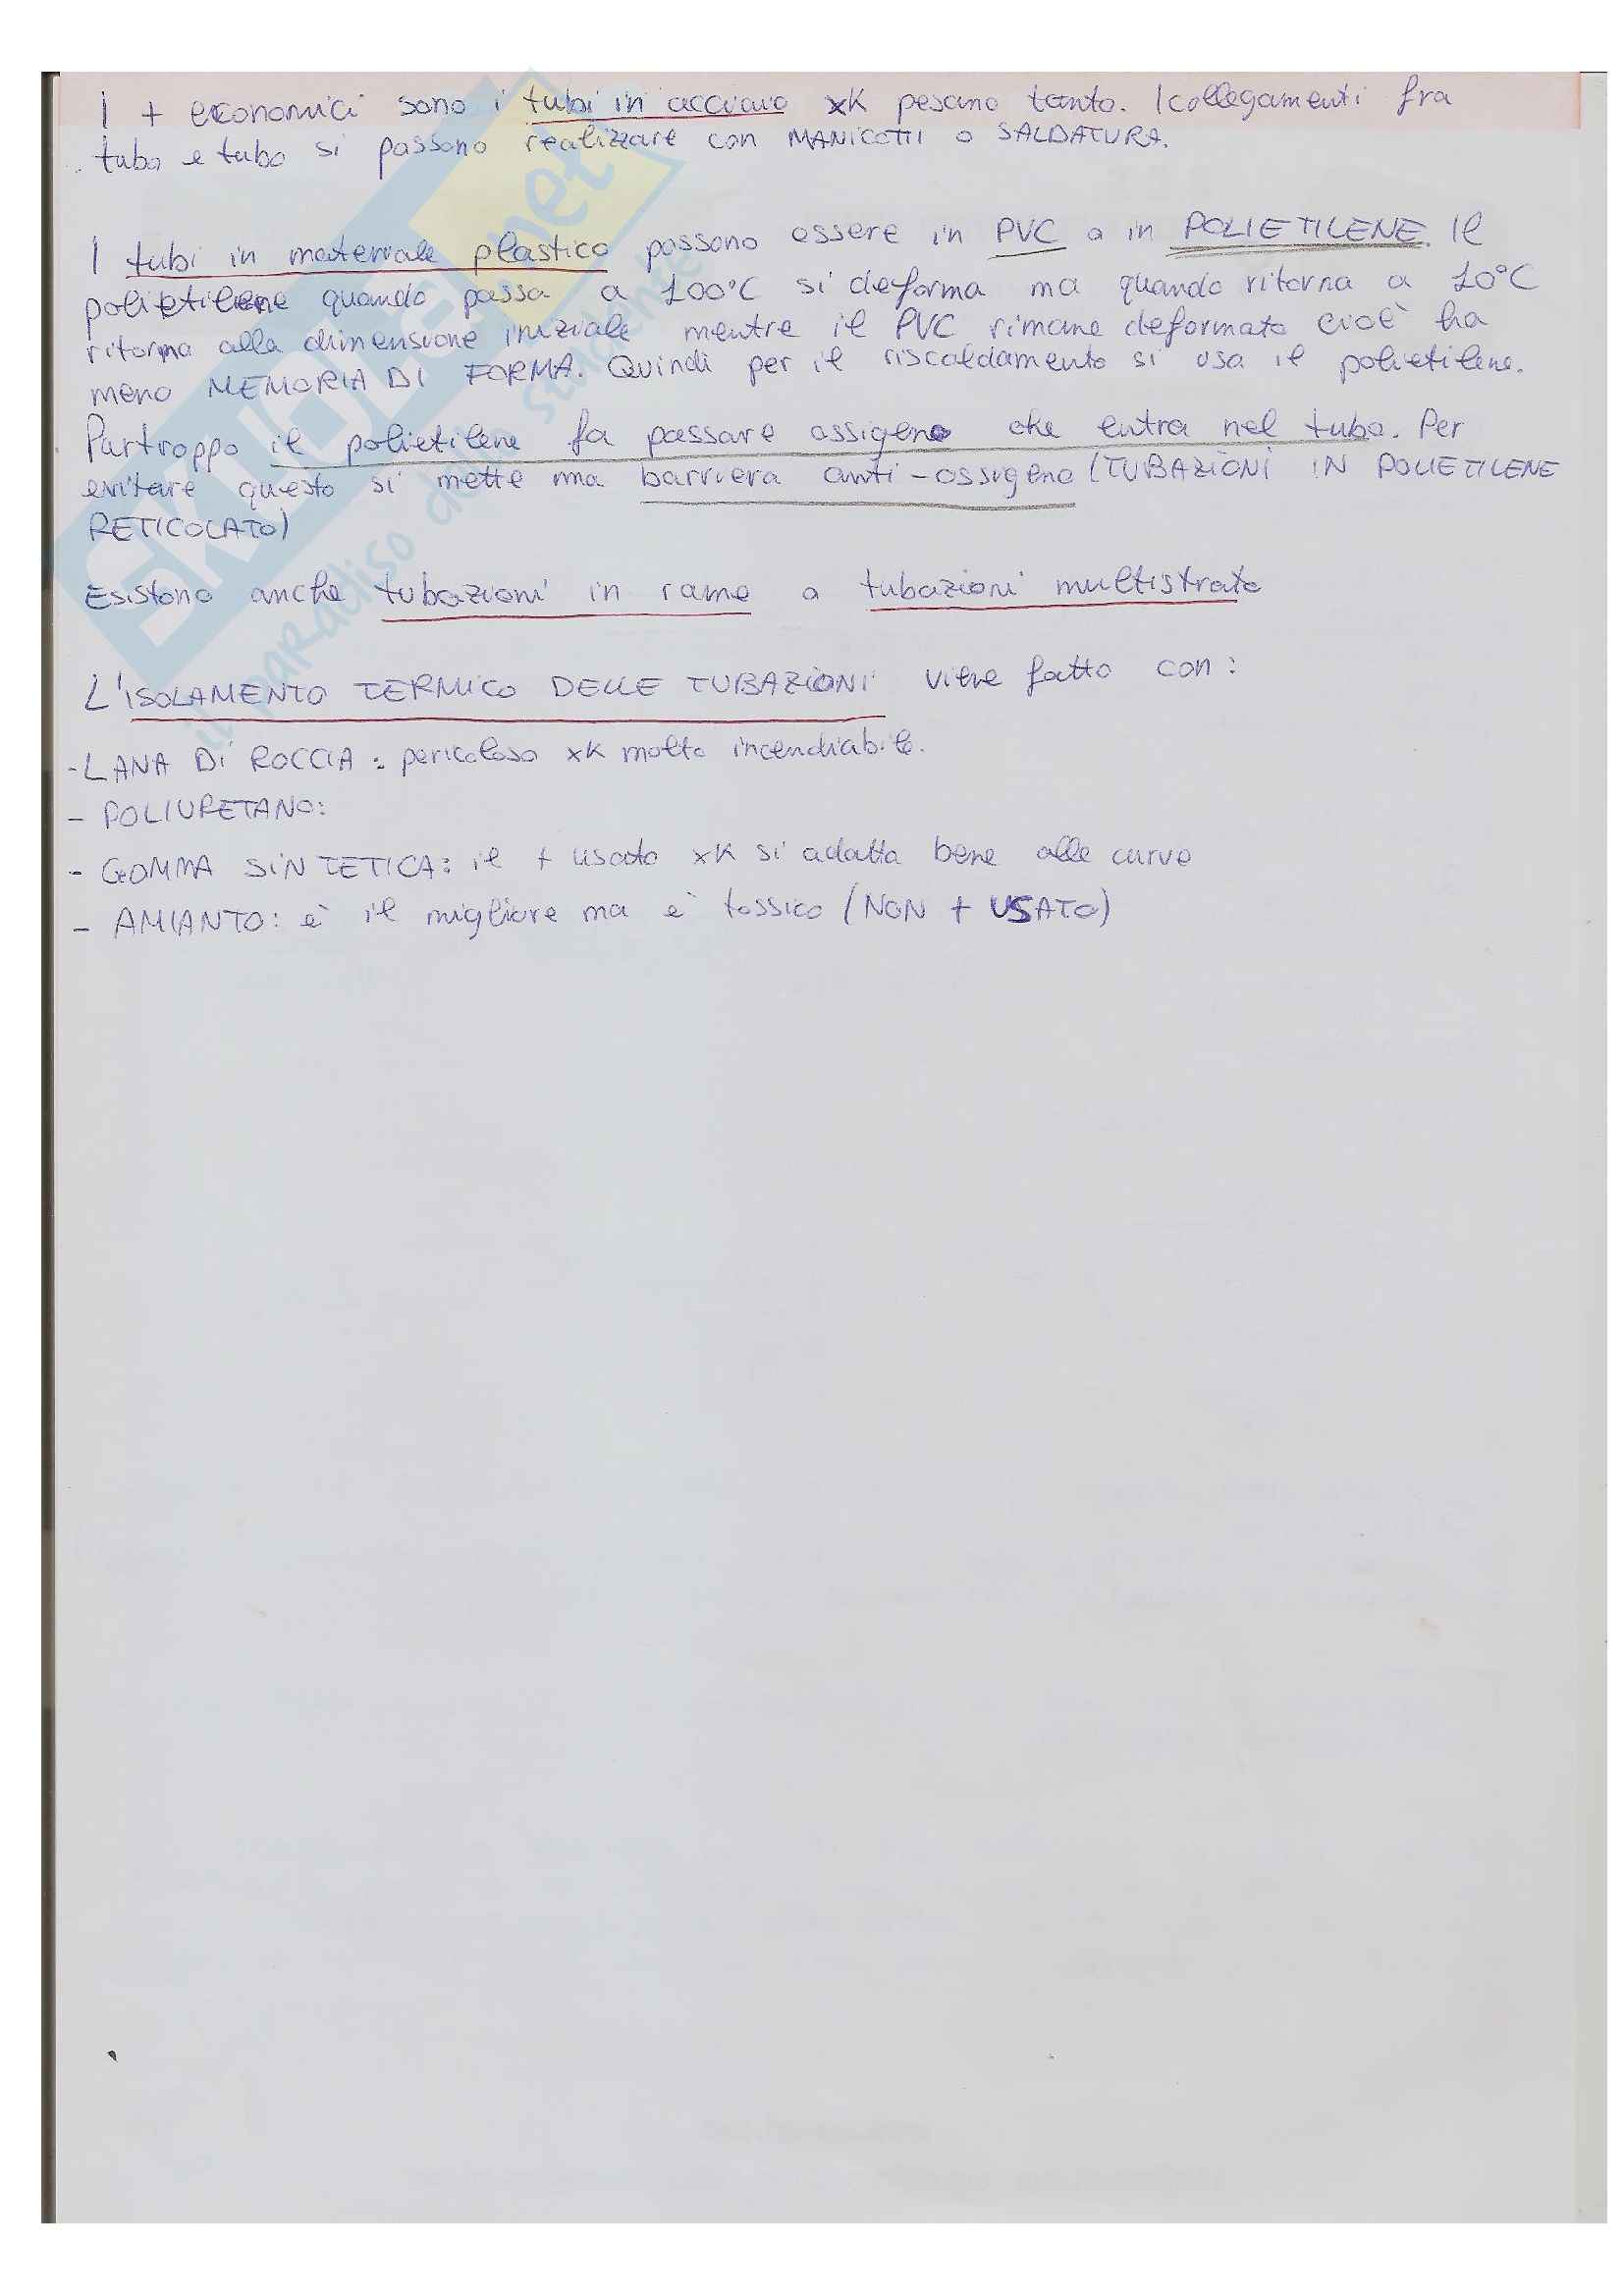 I + economici sono i tubi in acciaio xK pesano tanto. I collegamenti fra
tubo e tubo si possono realizzare con MANICOTTI o SALDATURA.
I tubi in materiale plastico possono essere in PVC o in POLIETILENE. Il
polietilene quando passa a 100°C si deforma ma quando ritorna a 20°C
ritorna alla dimensione iniziale mentre il PVC rimane deformato cioè ha
meno MEMORIA DI FORMA. Quindi per il riscaldamento si usa il polietilene.
Purtroppo il polietilene fa passare ossigeno che entra nel tubo. Per
evitare questo si mette una barriera anti-ossigeno (TUBAZIONI IN POLIETILENE
RETICOLATO)
Esistono anche tubazioni in rame o tubazioni multistrato
L'ISOLAMENTO TERMICO DELLE TUBAZIONI viene fatto con:
-LANA DI ROCCIA: pericoloso xK molto incendiabile.
- POLIURETANO:
- GOMMA SINTETICA: il + usato xK si adatta bene alle curve
- AMIANTO: è il migliore ma è tossico (NON + USATO)
SKUOLA.net
il paradiso dello studente